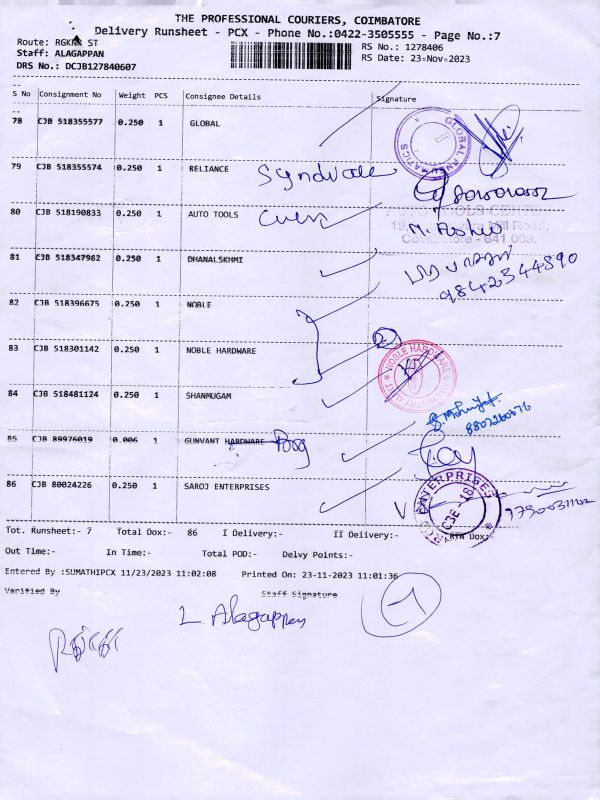 THE PROFESSIONAL COURIERS, COIMBATORE
Delivery Runsheet - PCX - Phone No.:0422-3505555 - Page No.:7
Route: RGKNR ST
RS No.: 1278406
Staff: ALAGAPPAN
RS Date: 23-Nov-2023
DRS No.: DCJB127840607
S No Consignment No Weight PCS Consignee Details Signature
78 CJB 518355577 0.250 1 GLOBAL
GLOBAL PNEUMATICS
79 CJB 518355574 0.250 1 RELIANCE Syndicate
80 CJB 518190833 0.250 1 AUTO TOOLS
Mill Road,
Coimbatore - 641 009.
81 CJB 518347962 0.250 1 DHANALSKHMI
9842344890
82 CJB 518396675 0.250 1 NOBLE
83 CJB 518301142 0.250 1 NOBLE HARDWARE
NOBLE HARDWARE
84 CJB 518481124 0.250 1 SHANMUGAM
85 CJB 89976019 0.006 1 GUNVANT HARDWARE
86 CJB 80024226 0.250 1 SAROJ ENTERPRISES
ENTERPRISES
CBE - 18
Tot. Runsheet:- 7 Total Dox:- 86 I Delivery:- II Delivery:- RTN Dox:
Out Time:- In Time:- Total POD:- Delvy Points:-
Entered By :SUMATHIPCX 11/23/2023 11:02:08 Printed On: 23-11-2023 11:01:36
Verified By Staff Signature
L. Alagappan